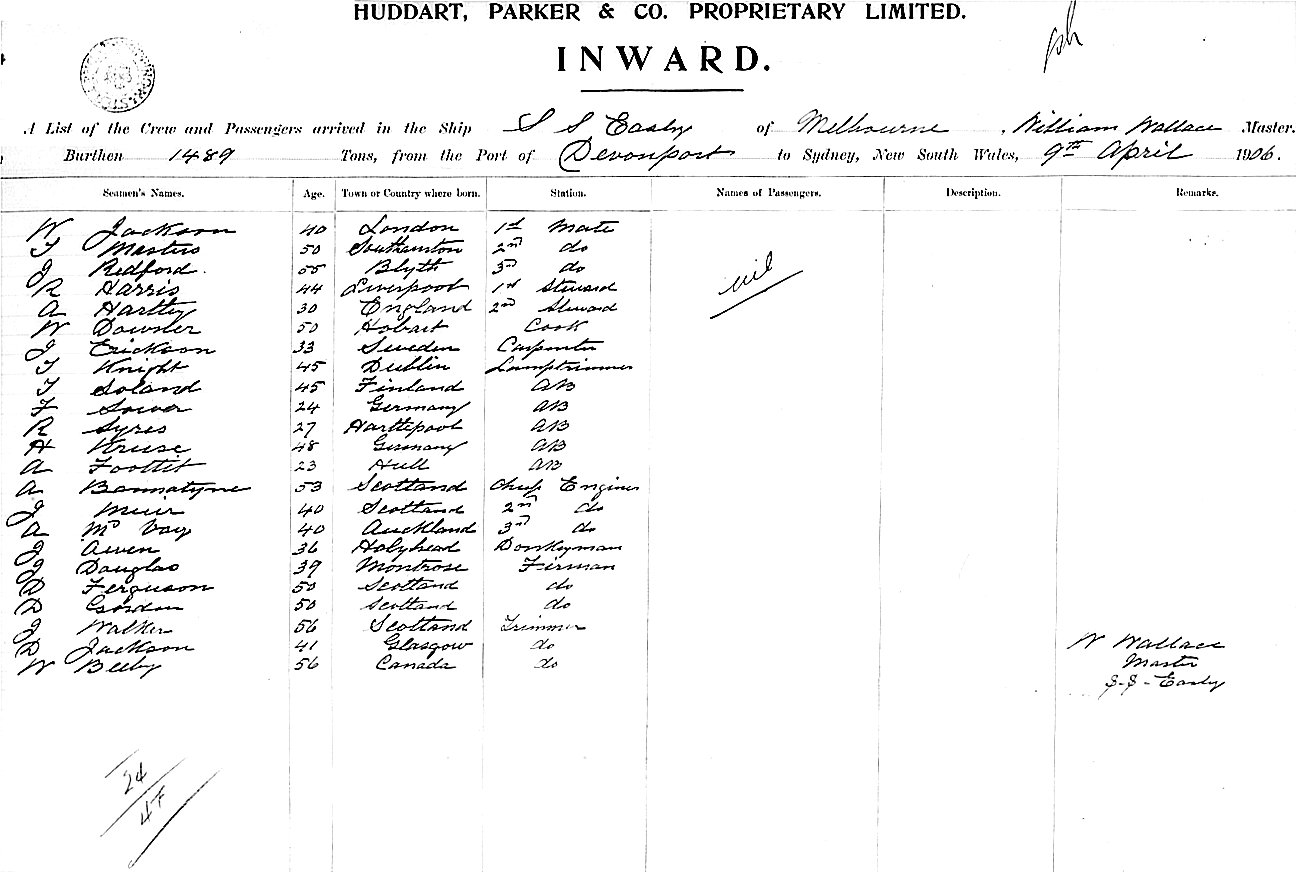 HUDDART, PARKER & CO. PROPRIETARY LIMITED.
INWARD.
A List of the Crew and Passengers arrived in the Ship S S Easby of Melbourne, William Wallace Master.
Burthen 1489 Tons, from the Port of Devonport to Sydney, New South Wales, 9th April 1906.
Seamen's Names. Age. Town or Country where born. Station. Names of Passengers. Description. Remarks.
W Jackson 40 London 1st Mate
T Masters 50 Southampton 2nd do
J Redford. 55 Blyth 3rd do
nil
R Harris 44 Liverpool 1st Steward
A Hartley 30 England 2nd Steward
W Downer 50 Hobart Cook
J Erickson 33 Sweden Carpenter
T Knight 45 Dublin Lamptrimmer
T Soland 45 Finland AB
F Sower 24 Germany AB
R Syres 27 Hartlepool AB
H Kruse 48 Germany AB
A Foottit 23 Hull AB
A Bannatyne 53 Scotland Chief Engineer
J Muir 40 Scotland 2nd do
A Mc Vay 40 Auckland 3rd do
J Owen 36 Holyhead Donkeyman
J Douglas 39 Montrose Firman
D Ferguson 50 Scotland do
D Gordon 50 Scotland do
J Walker 56 Scotland Trimmer
D Jackson 41 Glasgow do
W Beeby 56 Canada do
W Wallace
Master
S-S-Easby
24